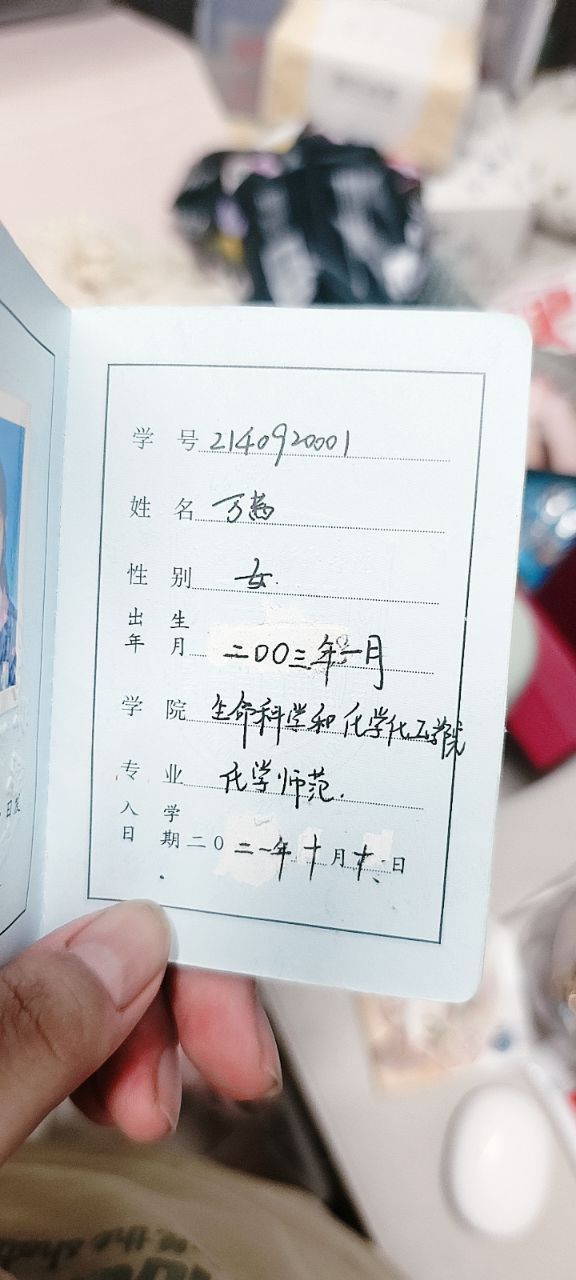 学号 2140920001
姓名 万茜
性别 女
出生年月 二00三年一月
学院 生命科学和化学化工学院
专业 化学师范
入学日期 二0二一年十月十六日